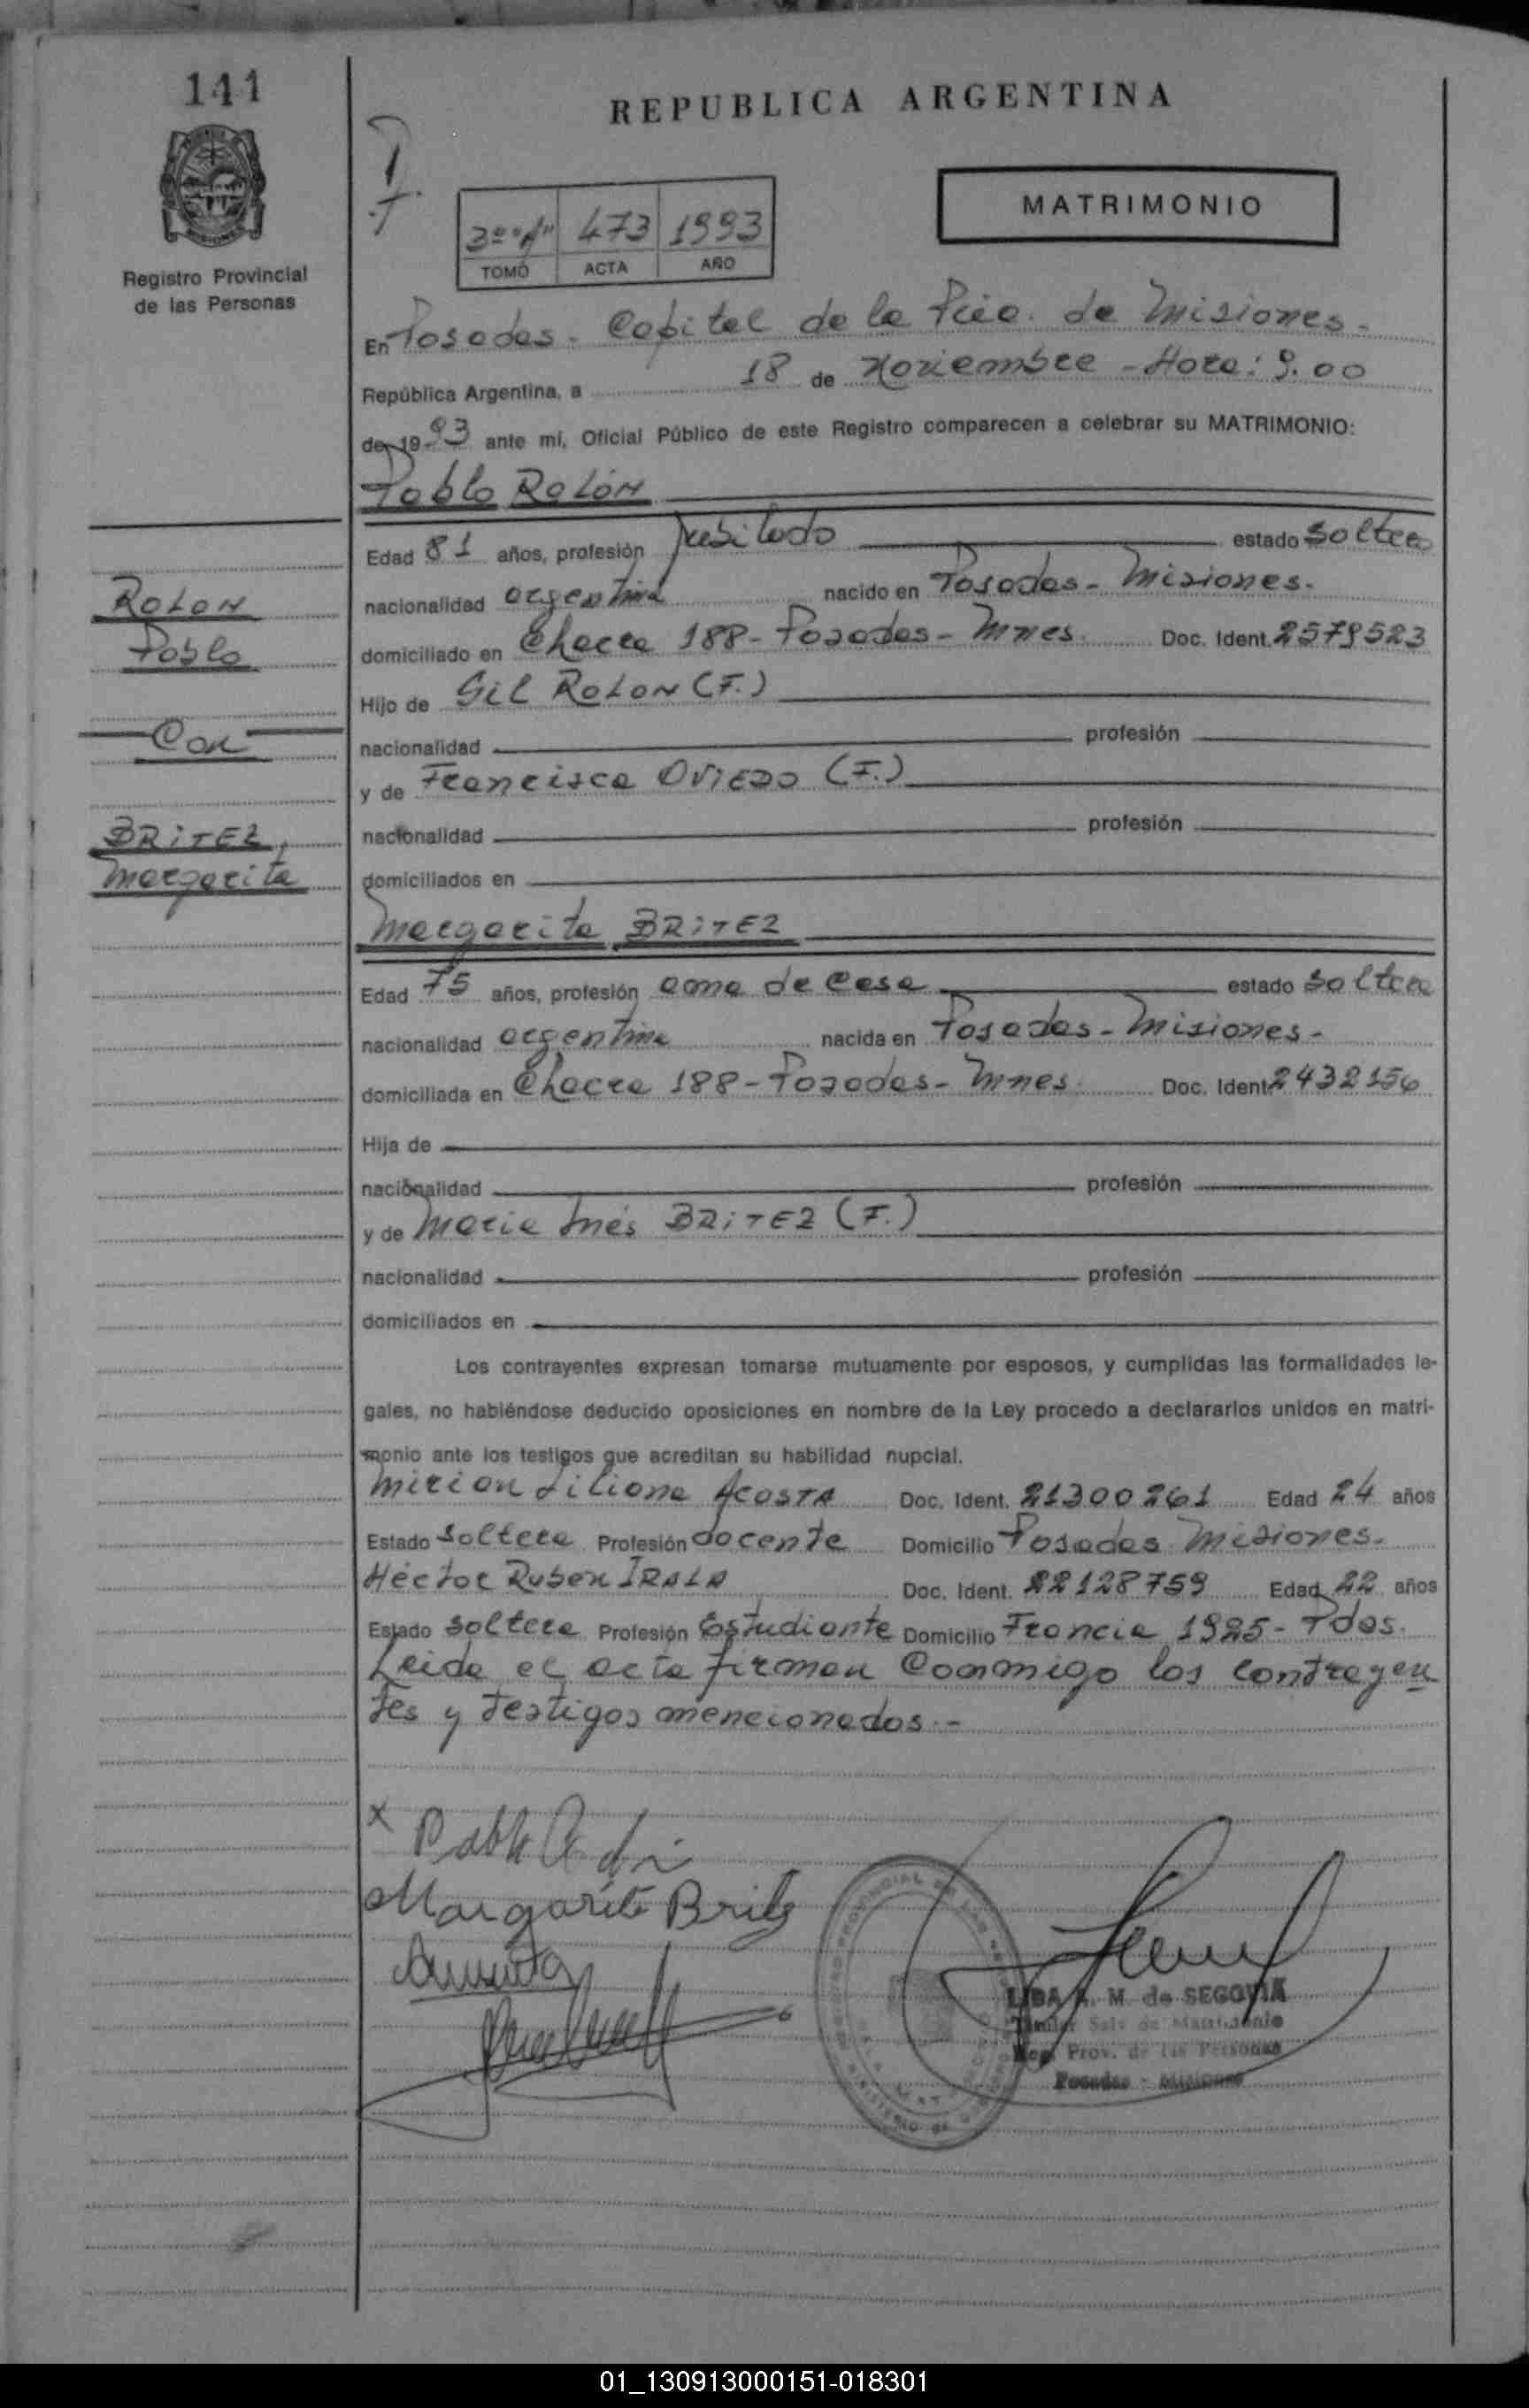 141
REPUBLICA ARGENTINA
MATRIMONIO
Registro Provincial
de las Personas
3º "A" 473 1993
TOMO ACTA AÑO
En Posadas - Capital de la Pcia. de Misiones -
República Argentina, a 18 de Noviembre - Hora: 9.00
de 1993 ante mí, Oficial Público de este Registro comparecen a celebrar su MATRIMONIO:
Pablo ROLÓN
Edad 81 años, profesión Jubilado estado soltero
nacionalidad argentina nacido en Posadas - Misiones.
domiciliado en Chacra 188 - Posadas - Mnes. Doc. Ident. 2579523
Hijo de Gil ROLON (F.)
nacionalidad profesión
y de Francisca OVIEDO (F.)
nacionalidad profesión
domiciliados en
ROLON
Pablo
Con
BRITEZ,
Margarita
Margarita BRITEZ
Edad 75 años, profesión ama de casa estado soltera
nacionalidad argentina nacida en Posadas - Misiones -
domiciliada en Chacra 188 - Posadas - Mnes. Doc. Ident. 2432156
Hija de
nacionalidad profesión
y de Maria Inés BRITEZ (F.)
nacionalidad profesión
domiciliados en
Los contrayentes expresan tomarse mutuamente por esposos, y cumplidas las formalidades le-
gales, no habiéndose deducido oposiciones en nombre de la Ley procedo a declararlos unidos en matri-
monio ante los testigos que acreditan su habilidad nupcial.
Mirian Liliana ACOSTA Doc. Ident. 21300261 Edad 24 años
Estado soltera Profesión docente Domicilio Posadas Misiones.
Héctor Ruben IRALA Doc. Ident. 22128759 Edad 22 años
Estado soltero Profesión Estudiante Domicilio Francia 1925 - Pdas.
Leida el acta firman conmigo los contrayen
tes y testigos mencionados. -
x Pablo
Margarita Britez
LIBA A. M. de SEGOVIA
Titular Sala de Matrimonio
Reg. Prov. de las Personas
Posadas - Misiones
01_130913000151-018301